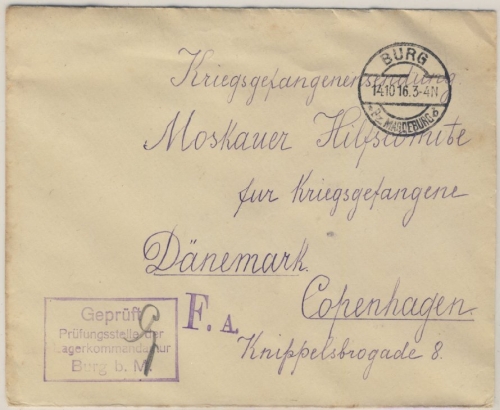 BURG
14.10.16.3-4N
* b. MAGDEBURG
Kriegsgefangenensendung
Moskauer Hilfscomite
für Kriegsgefangene
Dänemark.
Copenhagen.
Knippelsbrogade 8.
F. A.
Geprüft
Prüfungsstelle der
Lagerkommandantur
Burg b. M.